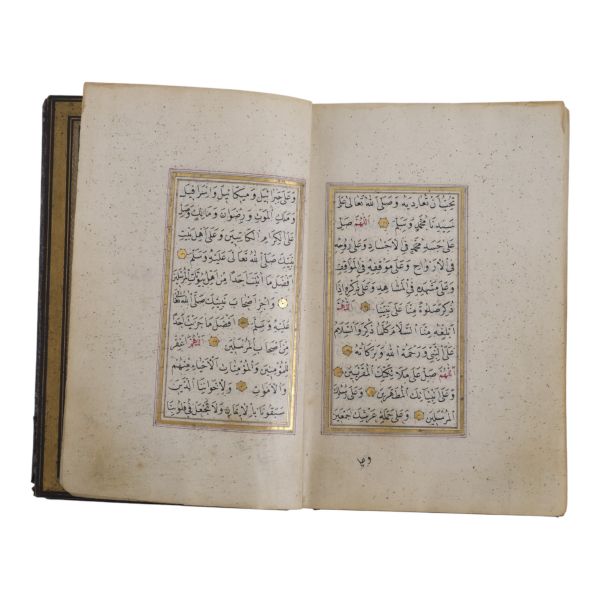 تحبّ ان تعاديه وصلى الله تعالى على
سيدنا محمد وسلم اللهم صل
على جسد محمد في الاجساد وعلى روحه
في الارواح وعلى موقفه في المواقف
وعلى مشهده في المشاهد وعلى ذكره اذا
ذكر صلوة منا على نبينا اللهم
ابلغه منا السلام كما ذكر والسلام
على النبي ورحمة الله وبركاته
اللهم صل على ملائكتك المقربين
وعلى انبيائك المطهرين وعلى رسلك
المرسلين وعلى حملة عرشك اجمعين
وعلى
وعلى جبرائيل وميكائيل واسرافيل
وملك الموت ورضوان ومالك وصل
على الكرام الكاتبين وعلى اهل بيت
نبيك صلى الله تعالى عليه وسلم
افضل ما اتيت احدا من اهل بيوت المرسلين
واجز اصحاب نبيك صلى الله تعالى
عليه وسلم افضل ما جزيت احدا
من اصحاب المرسلين اللهم اغفر
للمؤمنين والمؤمنات الاحياء منهم
والاموات ولاخواننا الذين
سبقونا بالايمان ولا تجعل في قلوبنا